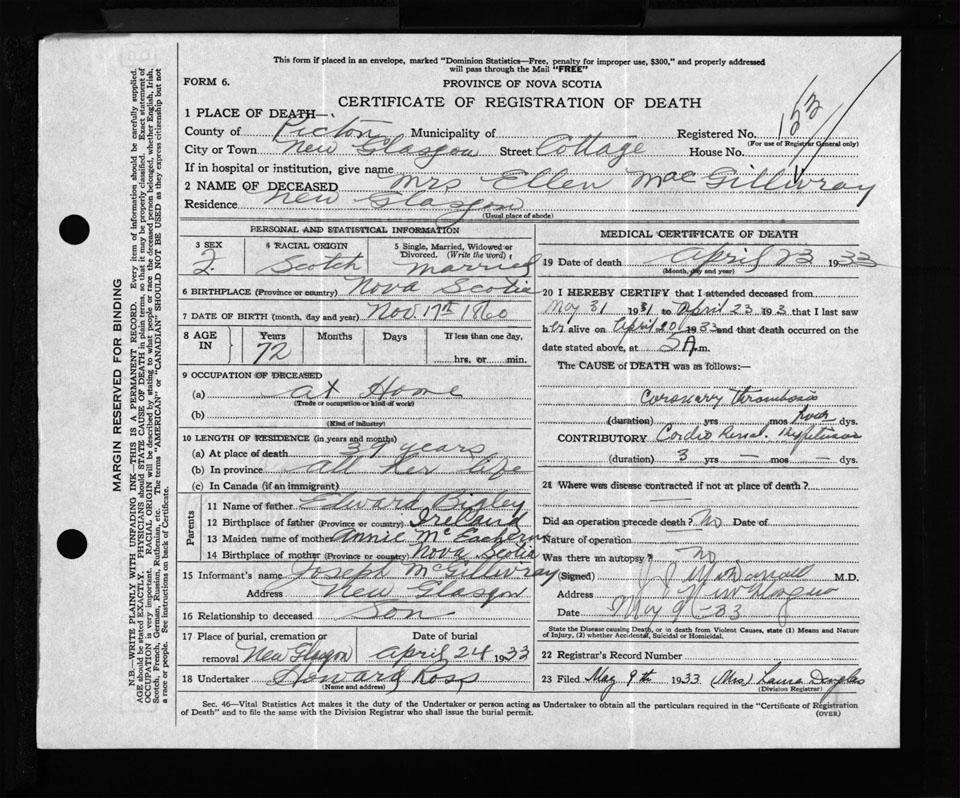 This form if placed in an envelope, marked "Dominion Statistics—Free, penalty for improper use, $300," and properly addressed
will pass through the Mail "FREE"
FORM 6.
PROVINCE OF NOVA SCOTIA
CERTIFICATE OF REGISTRATION OF DEATH
1 PLACE OF DEATH—
County of Pictou Municipality of Registered No. 153
(For use of Registrar General only)
City or Town New Glasgow Street Cottage House No.
If in hospital or institution, give name
2 NAME OF DECEASED Mrs Ellen MacGillivray
Residence New Glasgow
(Usual place of abode)
PERSONAL AND STATISTICAL INFORMATION
3 SEX 4 RACIAL ORIGIN 5 Single, Married, Widowed or Divorced. (Write the word)
F. Scotch Married
6 BIRTHPLACE (Province or country) Nova Scotia
7 DATE OF BIRTH (month, day and year) Nov. 17th 1860
8 AGE IN Years Months Days If less than one day,
72 hrs. or min.
9 OCCUPATION OF DECEASED
(a) at Home
(Trade or occupation or kind of work)
(b)
(Kind of industry)
10 LENGTH OF RESIDENCE (in years and months)
(a) At place of death 39 years
(b) In province all her life
(c) In Canada (if an immigrant)
Parents
11 Name of father Edward Bigley
12 Birthplace of father (Province or country) Ireland
13 Maiden name of mother Annie McEachern
14 Birthplace of mother (Province or country) Nova Scotia
15 Informant's name Joseph McGillivray
Address New Glasgow
16 Relationship to deceased Son
17 Place of burial, cremation or Date of burial
removal New Glasgow April 24 1933
18 Undertaker Howard Ross
(Name and address)
MEDICAL CERTIFICATE OF DEATH
19 Date of death April 23 1933
(Month, day and year)
20 I HEREBY CERTIFY that I attended deceased from
May 31 1931 to April 23 193 that I last saw
her alive on April 20 1933 and that death occurred on
date stated above, at 5 A.m.
The CAUSE of DEATH was as follows:—
Coronary thrombosis
(duration) yrs mos hour dys.
CONTRIBUTORY Cardio Renal.
(duration) 3 yrs — mos — dys.
21 Where was disease contracted if not at place of death?
—
Did an operation precede death? No Date of
Nature of operation
Was there an autopsy? No
(Signed) M.D.
Address New Glasgow
Date May 9-33
State the Disease causing Death, or in death from Violent Causes, state (1) Means and Nature
of Injury, (2) whether Accidental, Suicidal or Homicidal.
22 Registrar's Record Number
23 Filed May 9th 1933 (Mrs) Laura Douglas
(Division Registrar)
Sec. 46—Vital Statistics Act makes it the duty of the Undertaker or person acting as Undertaker to obtain all the particulars required in the "Certificate of Registration
of Death" and to file the same with the Division Registrar who shall issue the burial permit.
(OVER)
MARGIN RESERVED FOR BINDING
N.B.—WRITE PLAINLY WITH UNFADING INK—THIS IS A PERMANENT RECORD. Every item of information should be carefully supplied.
AGE should be stated EXACTLY. PHYSICIANS should STATE CAUSE OF DEATH in plain terms, so that it may be properly classified. Exact statement of
OCCUPATION is very important. RACIAL ORIGIN will be described by stating to what people or race the deceased person belonged, whether English, Irish,
Scotch, French, German, Russian, Ruthenian, etc. The terms "AMERICAN" or "CANADIAN" SHOULD NOT BE USED as they express citizenship but not
a race or people. See instructions on back of Certificate.